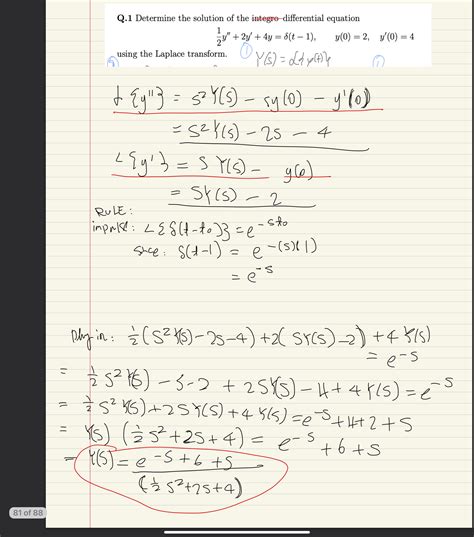 Q.1 Determine the solution of the integro-differential equation
1/2 y'' + 2y' + 4y = δ(t − 1), y(0) = 2, y'(0) = 4
using the Laplace transform.
Y(s) = L{y(t)}
L{y''} = s²Y(s) − sy(0) − y'(0)
= s²Y(s) − 2s − 4
L{y'} = sY(s) − y(0)
= sY(s) − 2
RULE:
L{δ(t-t₀)} = e^-st₀
δ(t-1) = e^-(s)(1)
= e^-s
Plug in: 1/2(s²Y(s) − 2s − 4) + 2(sY(s) − 2) + 4Y(s)
= e^-s
= 1/2 s²Y(s) − s − 2 + 2sY(s) − 4 + 4Y(s) = e^-s
= 1/2 s²Y(s) + 2sY(s) + 4Y(s) = e^-s + 4 + 2 + s
= Y(s) (1/2 s² + 2s + 4) = e^-s + 6 + s
= Y(s) = e^-s + 6 + s
(1/2 s² + 2s + 4)
81 of 88